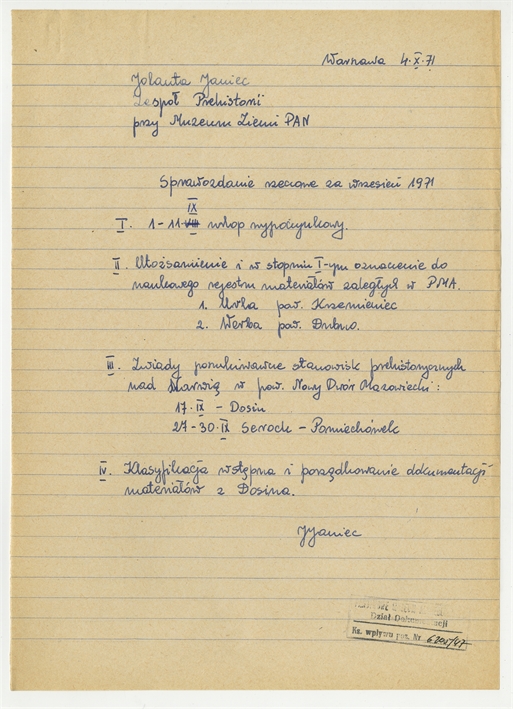 Warszawa 4.X.71
Jolanta Janiec
Zespół Prehistorii
przy Muzeum Ziemi PAN
Sprawozdanie rzeczowe za wrzesień 1971
IX
I. 1-11 VIII urlop wypoczynkowy.
II. Utożsamienie i w stopniu I-ym oznaczenie do
naukowego rejestru materiałów zaległych w PMA.
1. Uhla pow. Krzemieniec
2. Werba pow. Dubno.
III. Zwiady poszukiwawcze stanowisk prehistorycznych
nad Narwią w pow. Nowy Dwór Mazowiecki:
17.IX - Dosin
27-30.IX Serock - Pomiechówek
IV. Klasyfikacja wstępna i porządkowanie dokumentacji
materiałów z Dosina.
JJaniec
Dział Dokumentacji
Ks. wpływu poz. Nr